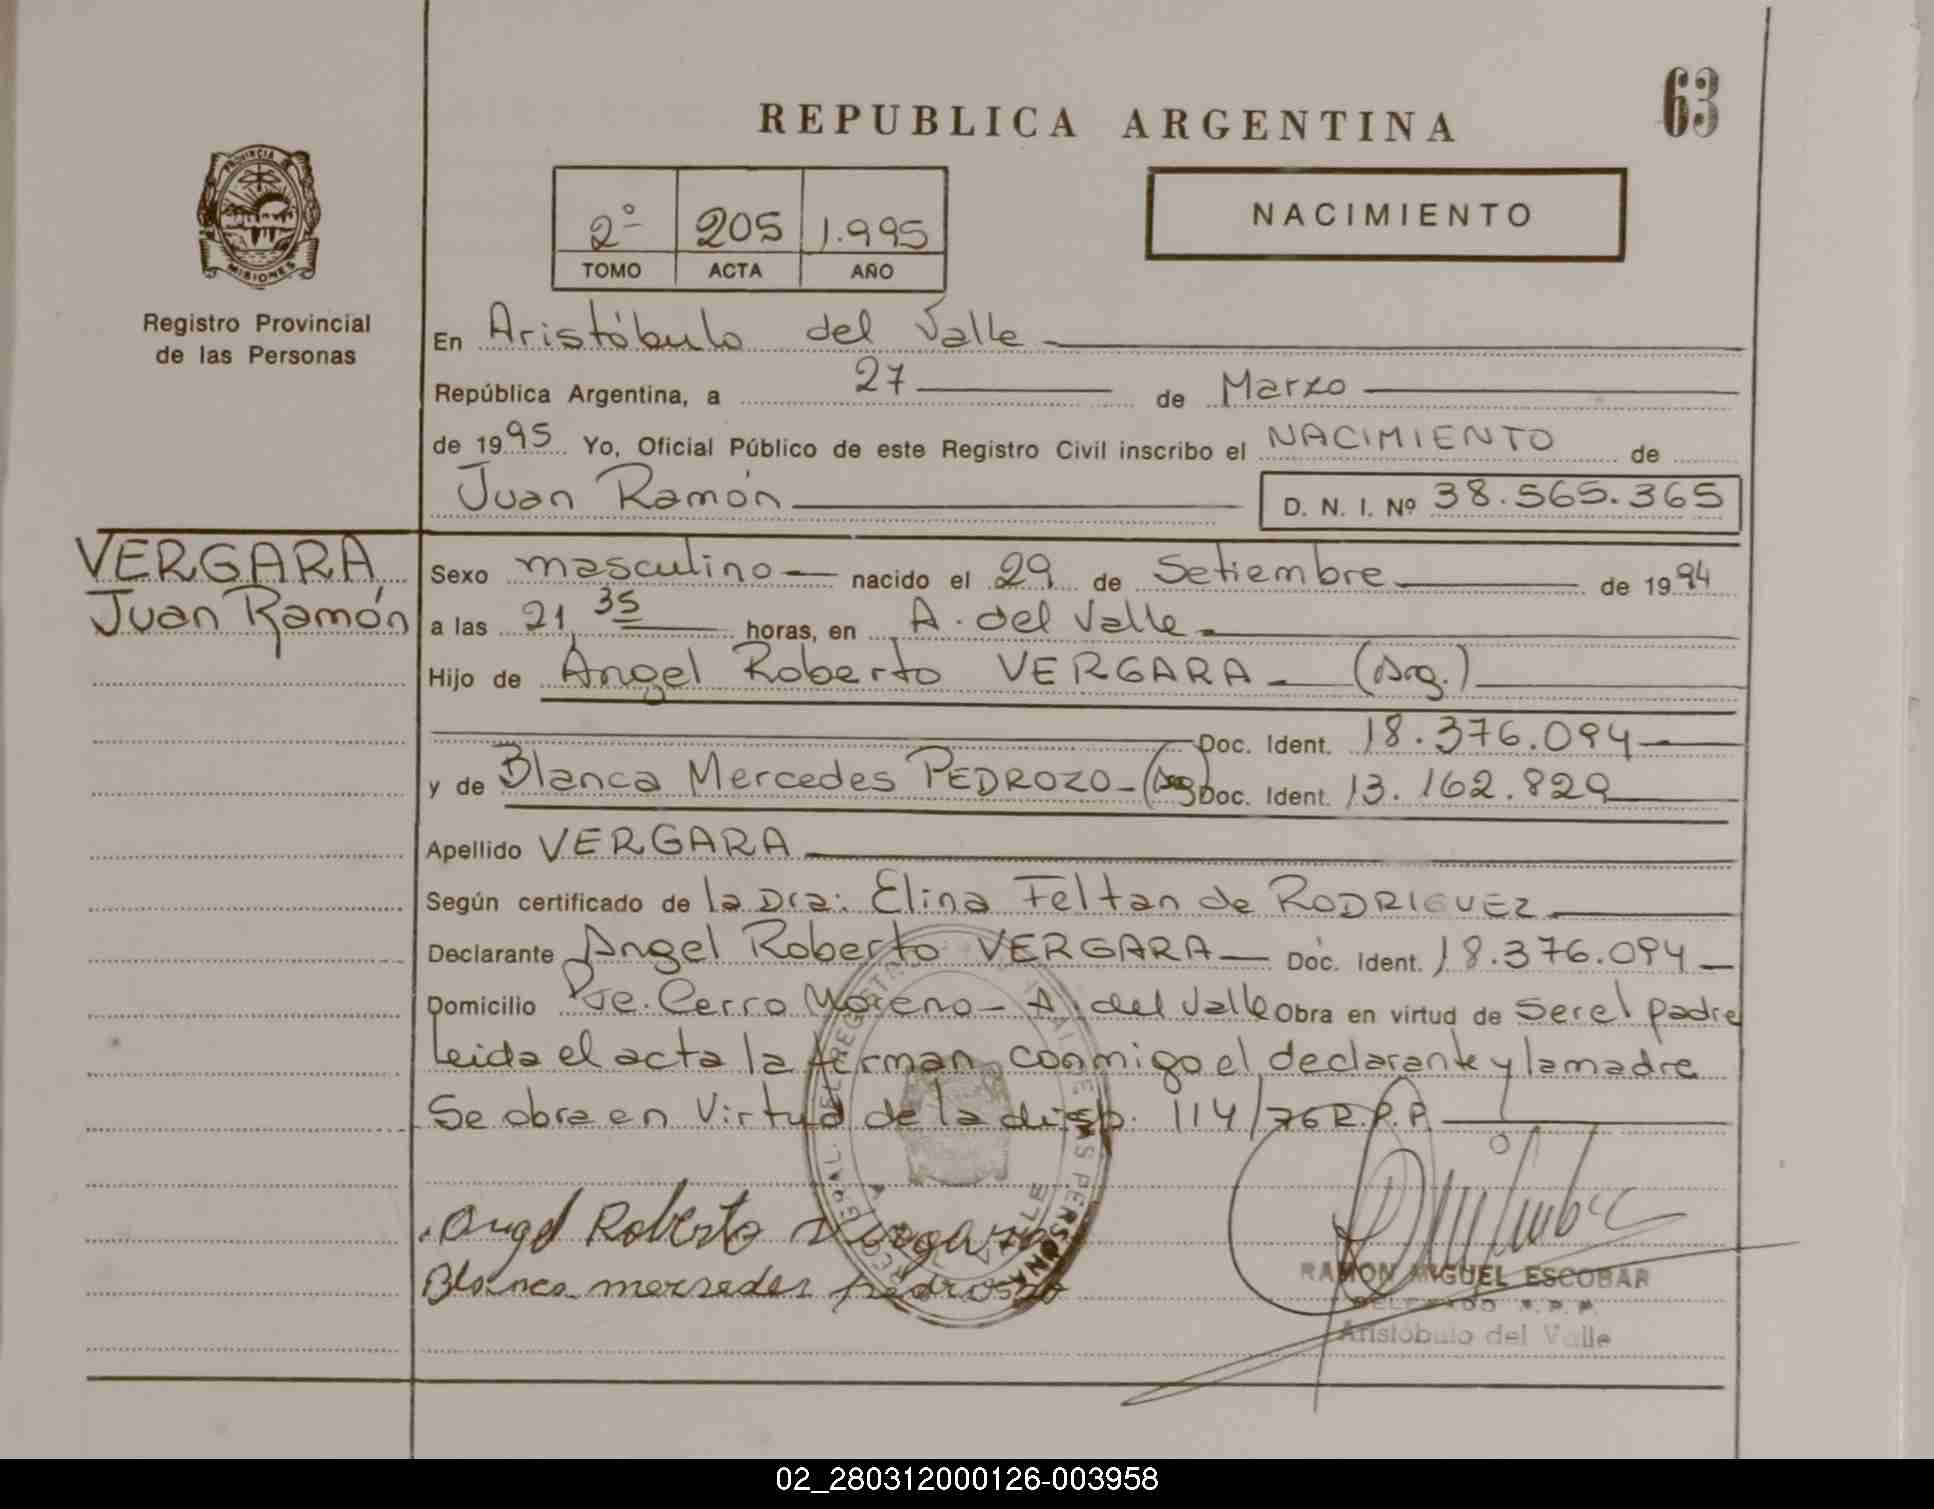 63
REPUBLICA ARGENTINA
PROVINCIA DE
MISIONES
Registro Provincial
de las Personas
2º 205 1.995
TOMO ACTA AÑO
NACIMIENTO
En Aristóbulo del Valle
República Argentina, a 27 de Marzo
de 1995 Yo, Oficial Público de este Registro Civil inscribo el NACIMIENTO de
Juan Ramón D. N. I. Nº 38.565.365
VERGARA
Juan Ramón
Sexo masculino nacido el 29 de Setiembre de 1994
a las 21,35 horas, en A. del Valle
Hijo de Angel Roberto VERGARA (Arg.)
Doc. Ident. 18.376.094
y de Blanca Mercedes PEDROZO - (Arg) Doc. Ident. 13.162.829
Apellido VERGARA
Según certificado de la Dra: Elina Feltan de RODRIGUEZ
Declarante Angel Roberto VERGARA Doc. Ident. 18.376.094
Domicilio Pje. Cerro Moreno - A. del Valle Obra en virtud de ser el padre
Leida el acta la firman conmigo el declarante y la madre
Se obra en Virtud de la disp. 114/76 R.P.P.
Angel Roberto Vergara
Blanca mersedes pedroso
RAMON MIGUEL ESCOBAR
DELEGADO R.P.P.
Aristóbulo del Valle
02_280312000126-003958